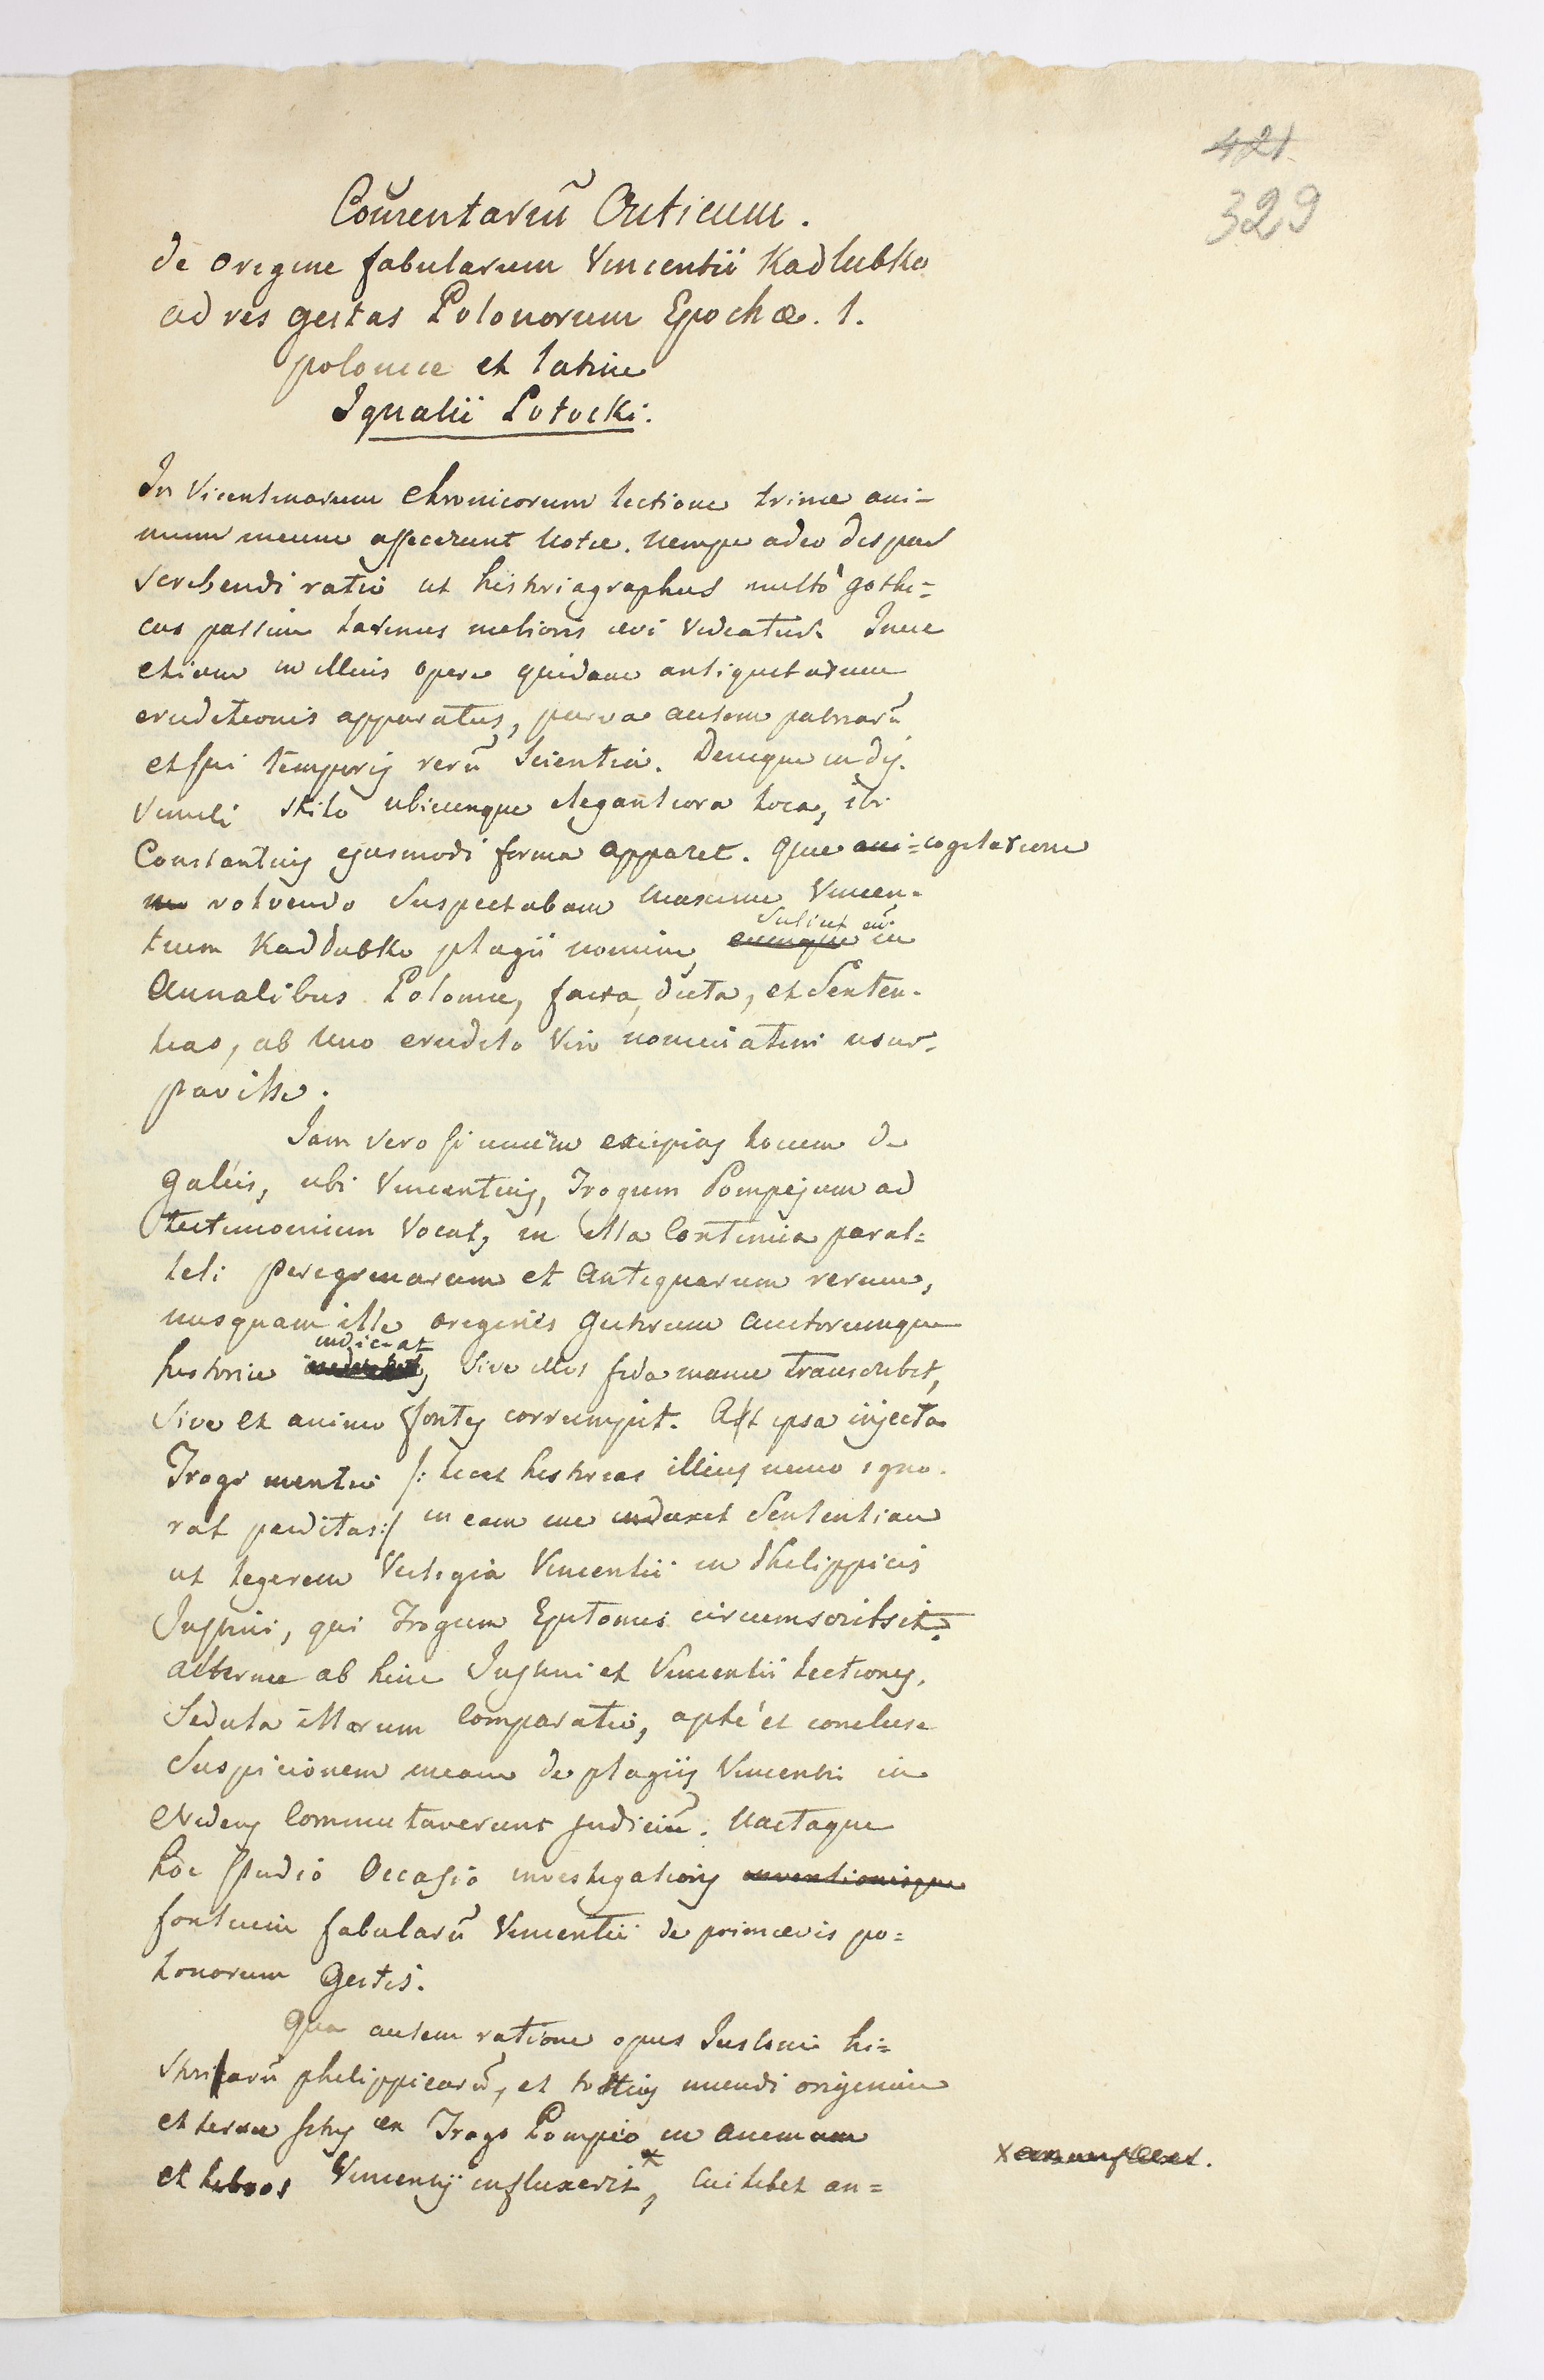 421
329
Com̃entariũ Criticum.
de origine fabularum Vincentii Kadlubko
ad res gestas Polonorum Epochæ. 1.
polonice et latine
Ignatii Potocki.
In Vicentinarum Chronicorum lectione trinæ ani-
mum meum affecerunt notæ. nempe adeo dispar
Scribendi ratio ut histriagraphus multò gothi=
cus passim latinus melioris ævi videatur. Inne
etiam in illius opere quidam antiquitatum
eruditionis apparatus, parva autem patriarũ
et sui temporis rerũ Scientia. Denique in dis-
simili Stilo ubicunque elegantiora loca, ibi
Constantius ejusmodi forma apparet. Quæ ani= cogitatione
mo volvendo Suspectabam maxime Vincen-
Suliut eũ
tium Kadlubko plagii nomine, eumque in
Annalibus Poloniæ, facta, dicta, et Senten-
tias, ab uno erudito Viro nominatim usur-
pavisse.
Jam vero si unum excipias locum de
Gallis, ubi Vincentius, Trogum Pompejum ad
testimonium Vocat, in illa Continua paral=
leli peregrinarum et Antiquarum rerum,
nusquam ille originis Gentium Auctorumque
indicat
historiæ sive illos fida manu transcribit,
Sive ex animo fontes corrumpit. Ast ipsa injecta
Trogi mentio /: licet historias illius nemo igno-
rat perditas :/ in eam me induxit Sententiam
ut legerem Vestigia Vincentii in Philippicis
Justini, qui Trogum Epitomis circumscribsit.
alternæ ab hinc Justini et Vincentii lectiones,
Sedula illorum Comparatio, aptè et concluse
Suspicionem meam de plagiis Vincentii in
evidens Commutaverunt judiciũ. Nactaque
hoc studio Occasio investigationis inventionisque
fontium fabularũ Vincentii de primævis po=
lonorum Gestis.
Qua autem ratione opus Justini hi=
storiarũ philippicarũ, et totius mundi originum
et terræ situs ex Trogo Pompeio in animum
et libros Vincentij influxerit*, Cuilibet an=
x